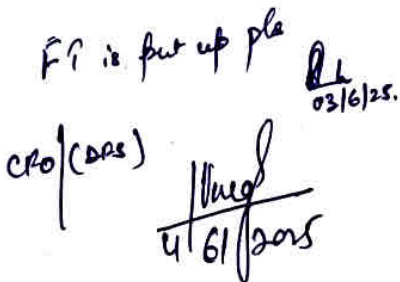 FT is put up pls
03/6/25.
CRO/(DPS)
4/6/2025